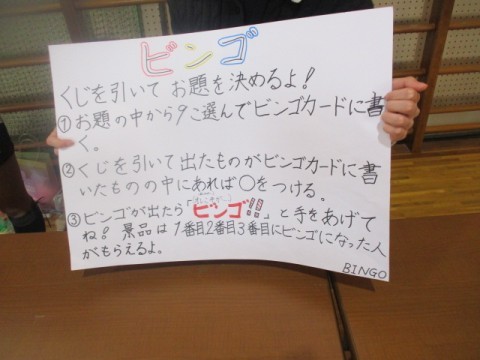 ビンゴ
くじを引いてお題を決めるよ!
①お題の中から9こ選んでビンゴカードに書
く。
②くじを引いて出たものがビンゴカードに書
いたものの中にあれば○をつける。
③ビンゴが出たら「ビンゴ!!」と手をあげて
ね! 景品は1番目2番目3番目にビンゴになった人
がもらえるよ。
BINGO